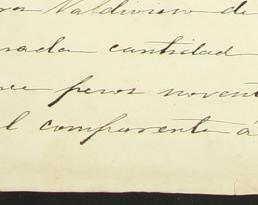 Valdivieso de
rada cantidad
pesos novent
l comparente á